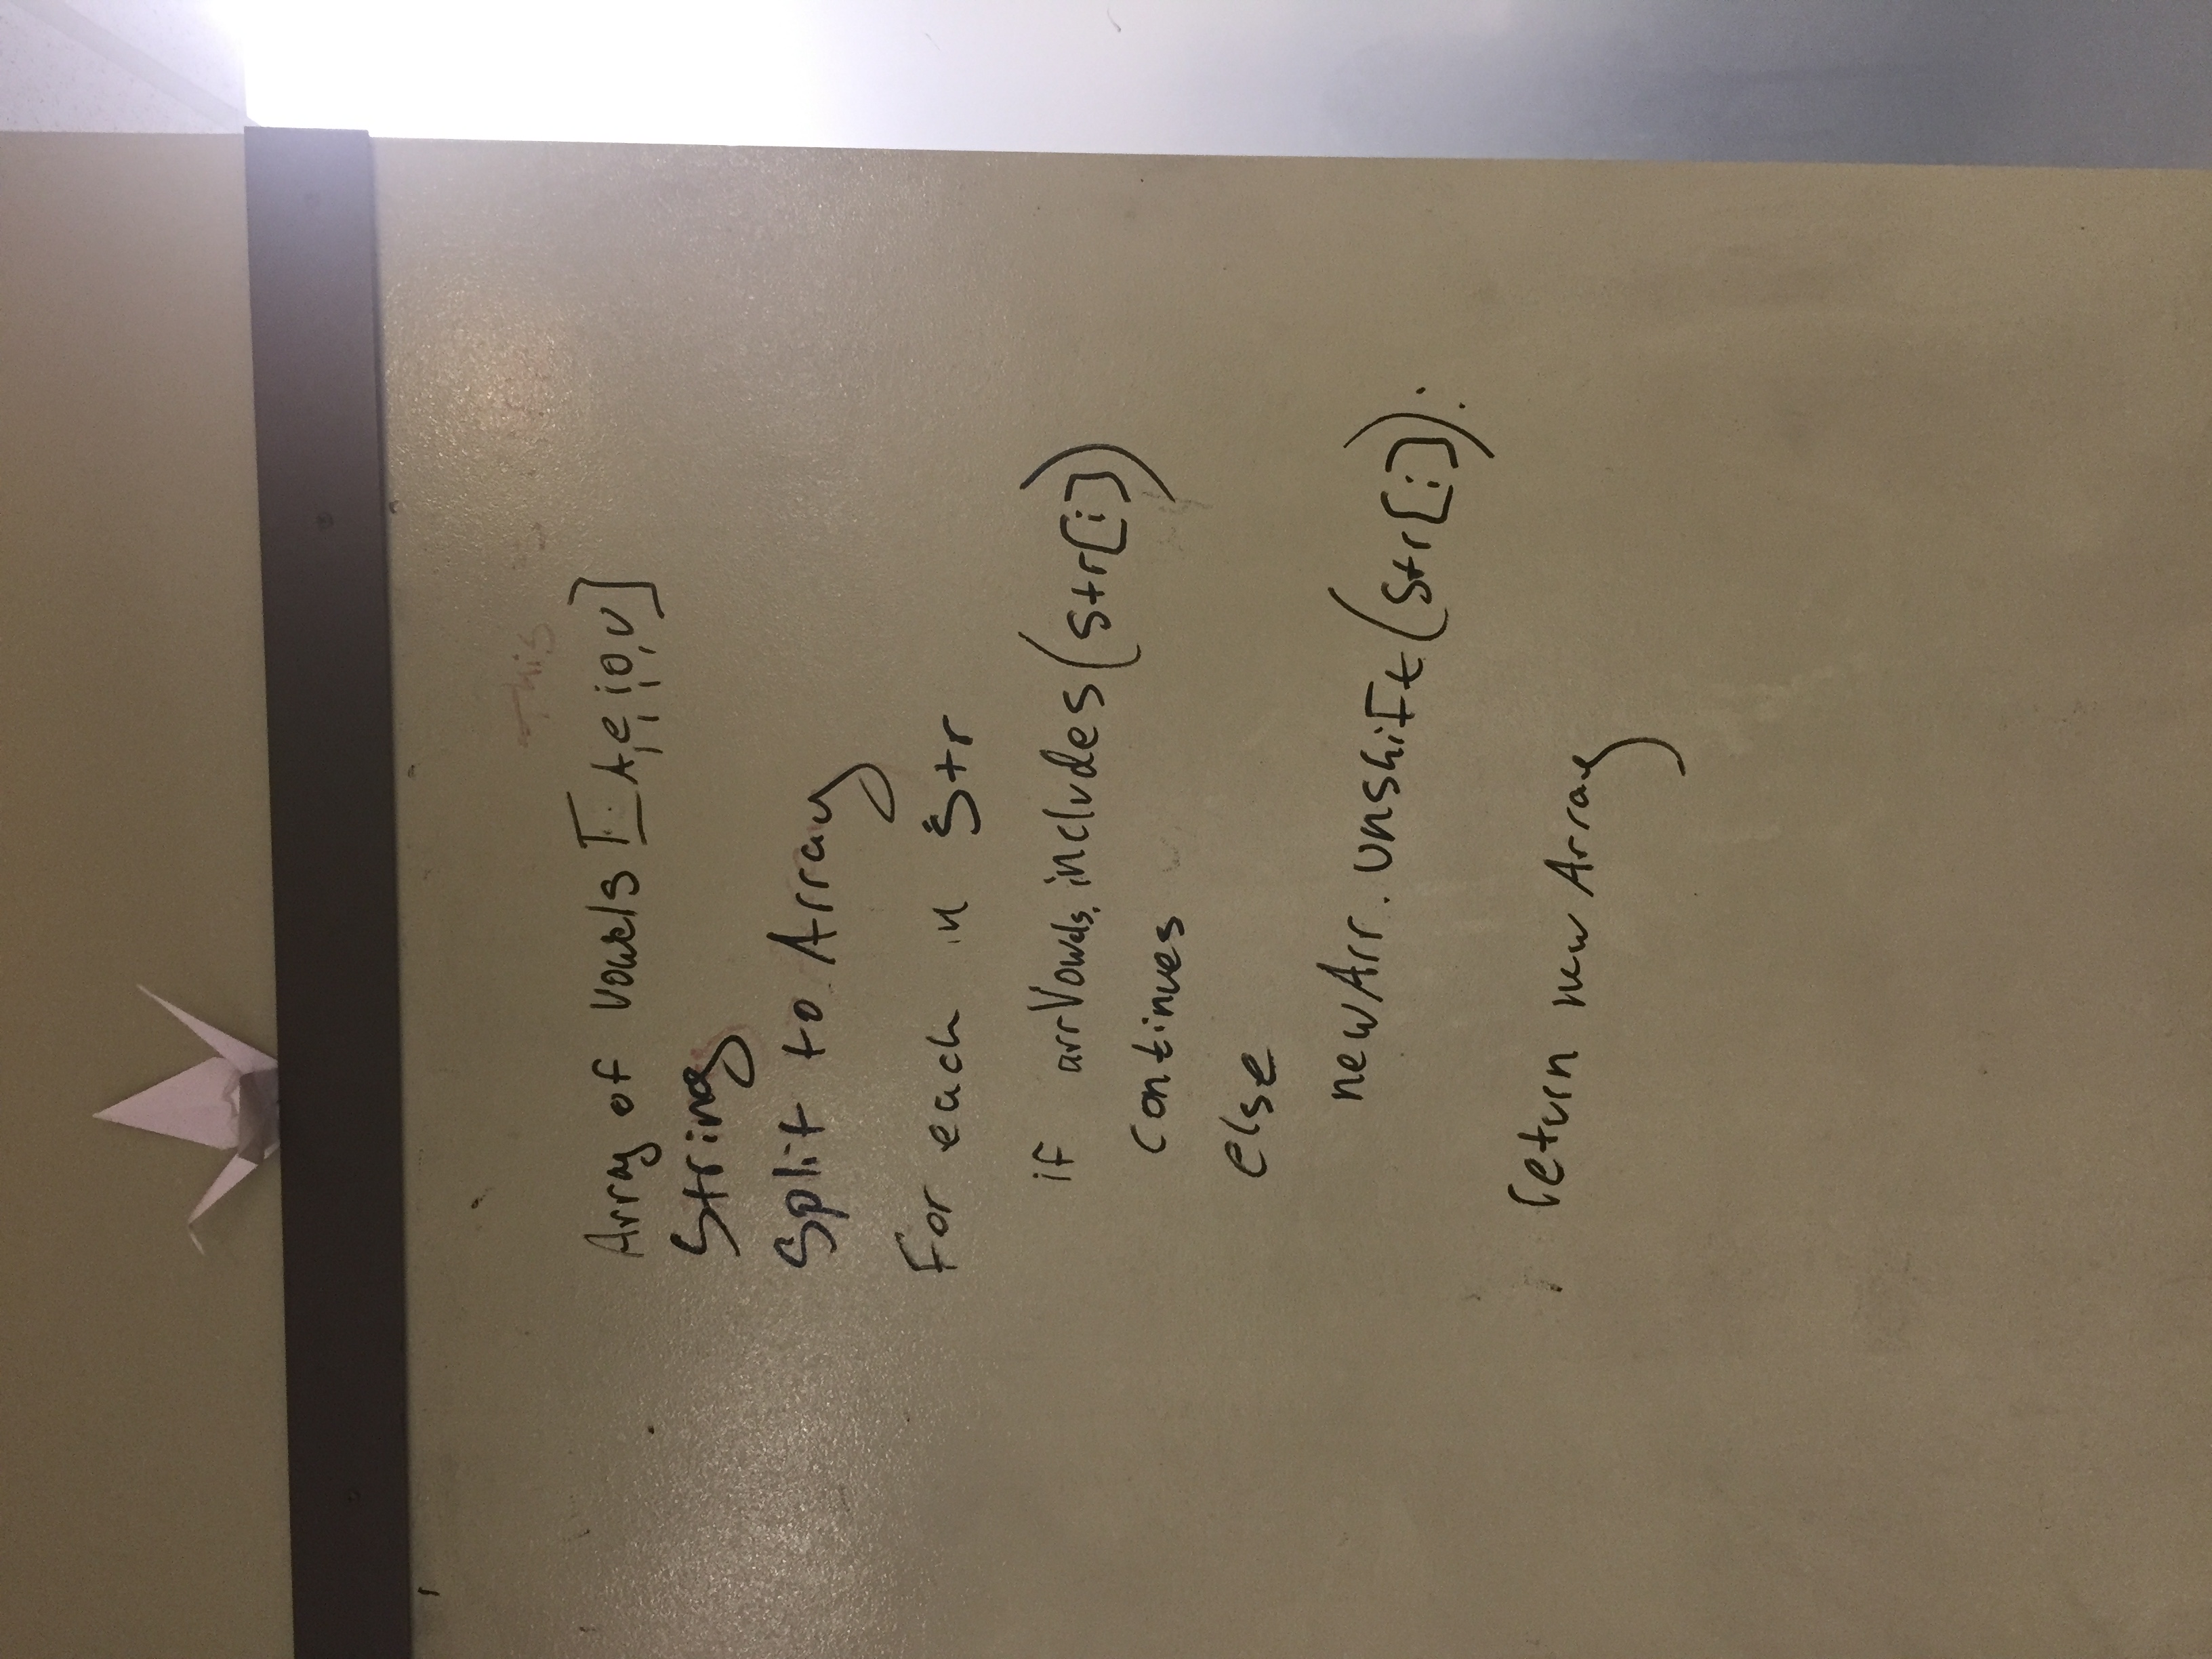 This is
Array of Vowels [A,e,i,o,u]
String
Split to Array
For each in str
if arrVowels.includes(str[i])
continues
else
newArr.unshift(str[i]);
return new Array